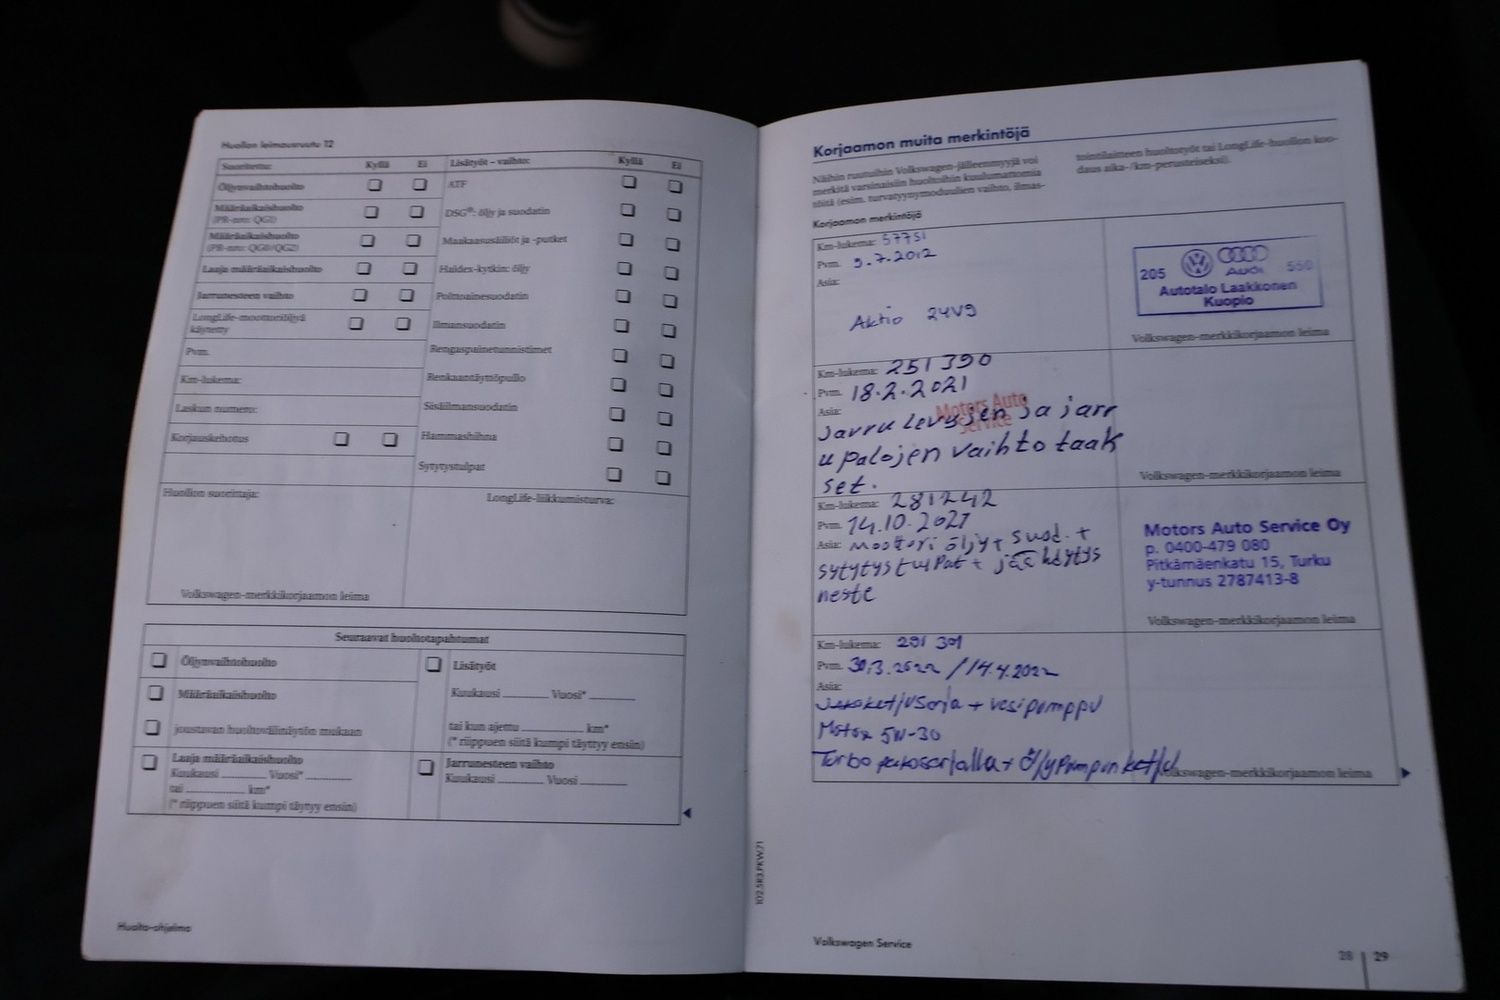 Huollon leimausruutu 12
Suoritettu: Kyllä Ei
Öljynvaihtohuolto
Määräaikaishuolto
(PR-nro: QG1)
Määräaikaishuolto
(PR-nro: QG0/QG2)
Laaja määräaikaishuolto
Jarrunesteen vaihto
LongLife-moottoriöljyä
käytetty
Pvm.
Km-lukema:
Laskun numero:
Korjauskehotus
Lisätyöt – vaihto: Kyllä Ei
ATF
DSG®: öljy ja suodatin
Maakaasusäiliöt ja -putket
Haldex-kytkin: öljy
Polttoainesuodatin
Ilmansuodatin
Rengaspainetunnistimet
Renkaantäyttöpullo
Sisäilmansuodatin
Hammashihna
Sytytystulpat
Huollon suorittaja:
LongLife-liikkumisturva:
Volkswagen-merkkikorjaamon leima
Seuraavat huoltotapahtumat
Öljynvaihtohuolto
Määräaikaishuolto
joustavan huoltovälinäytön mukaan
Laaja määräaikaishuolto
Kuukausi ________ Vuosi* ________
tai ________ km*
(* riippuen siitä kumpi täytyy ensin)
Lisätyöt
Kuukausi ________ Vuosi* ________
tai kun ajettu ________ km*
(* riippuen siitä kumpi täyttyy ensin)
Jarrunesteen vaihto
Kuukausi ________ Vuosi ________
Huolto-ohjelma
Korjaamon muita merkintöjä
Näihin ruutuihin Volkswagen-jälleenmyyjä voi
merkitä varsinaisiin huoltoihin kuulumattomia
töitä (esim. turvatyynymoduulien vaihto, ilmas-
tointilaitteen huoltotyöt tai LongLife-huollon koo-
daus aika-/km-perusteiseksi).
Korjaamon merkintöjä
Km-lukema: 57751
Pvm. 9.7.2012
Asia:
Aktio 24V9
205 Audi 550
Autotalo Laakkonen
Kuopio
Volkswagen-merkkikorjaamon leima
Km-lukema: 251390
Pvm. 18.2.2021
Motors Auto
Service
Asia:
Jarru levyjen ja jarr
u palojen vaihto taak
set.
Volkswagen-merkkikorjaamon leima
Km-lukema: 281242
Pvm. 14.10.2021
Asia: moottori öljy + suod. +
sytytystulpat + jäähdytys
neste
Motors Auto Service Oy
p. 0400-479 080
Pitkämäenkatu 15, Turku
y-tunnus 2787413-8
Volkswagen-merkkikorjaamon leima
Km-lukema: 291 301
Pvm. 30.3.2022 / 14.4.2022
Asia:
Jakoketjusarja + vesipumppu
5W-30
Turbo pakosarjalla + öljypumpun ketju
Volkswagen-merkkikorjaamon leima
102.5R3.PKW.71
Volkswagen Service
28 29